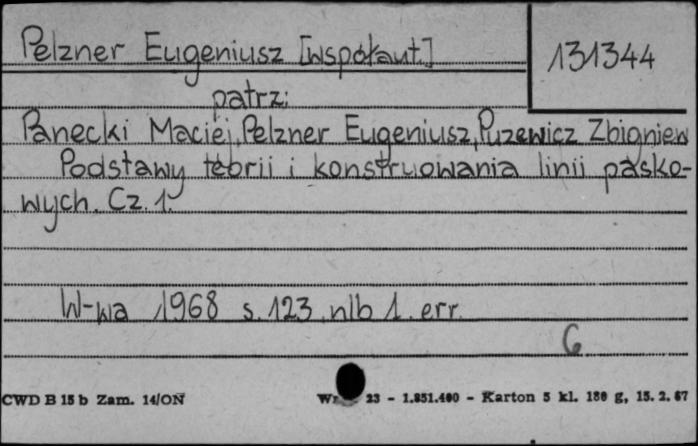 Pelzner Eugeniusz [współaut.]
131344
patrz:
Panecki Maciej, Pelzner Eugeniusz, Puzewicz Zbigniew
Podstawy teorii i konstruowania linii pasko-
wych. Cz. 1.
W-wa 1968 s. 123, nlb 1. err.
G
CWD B 15 b Zam. 14/ON
23 - 1.851.400 - Karton 5 kl. 180 g, 15. 2. 67